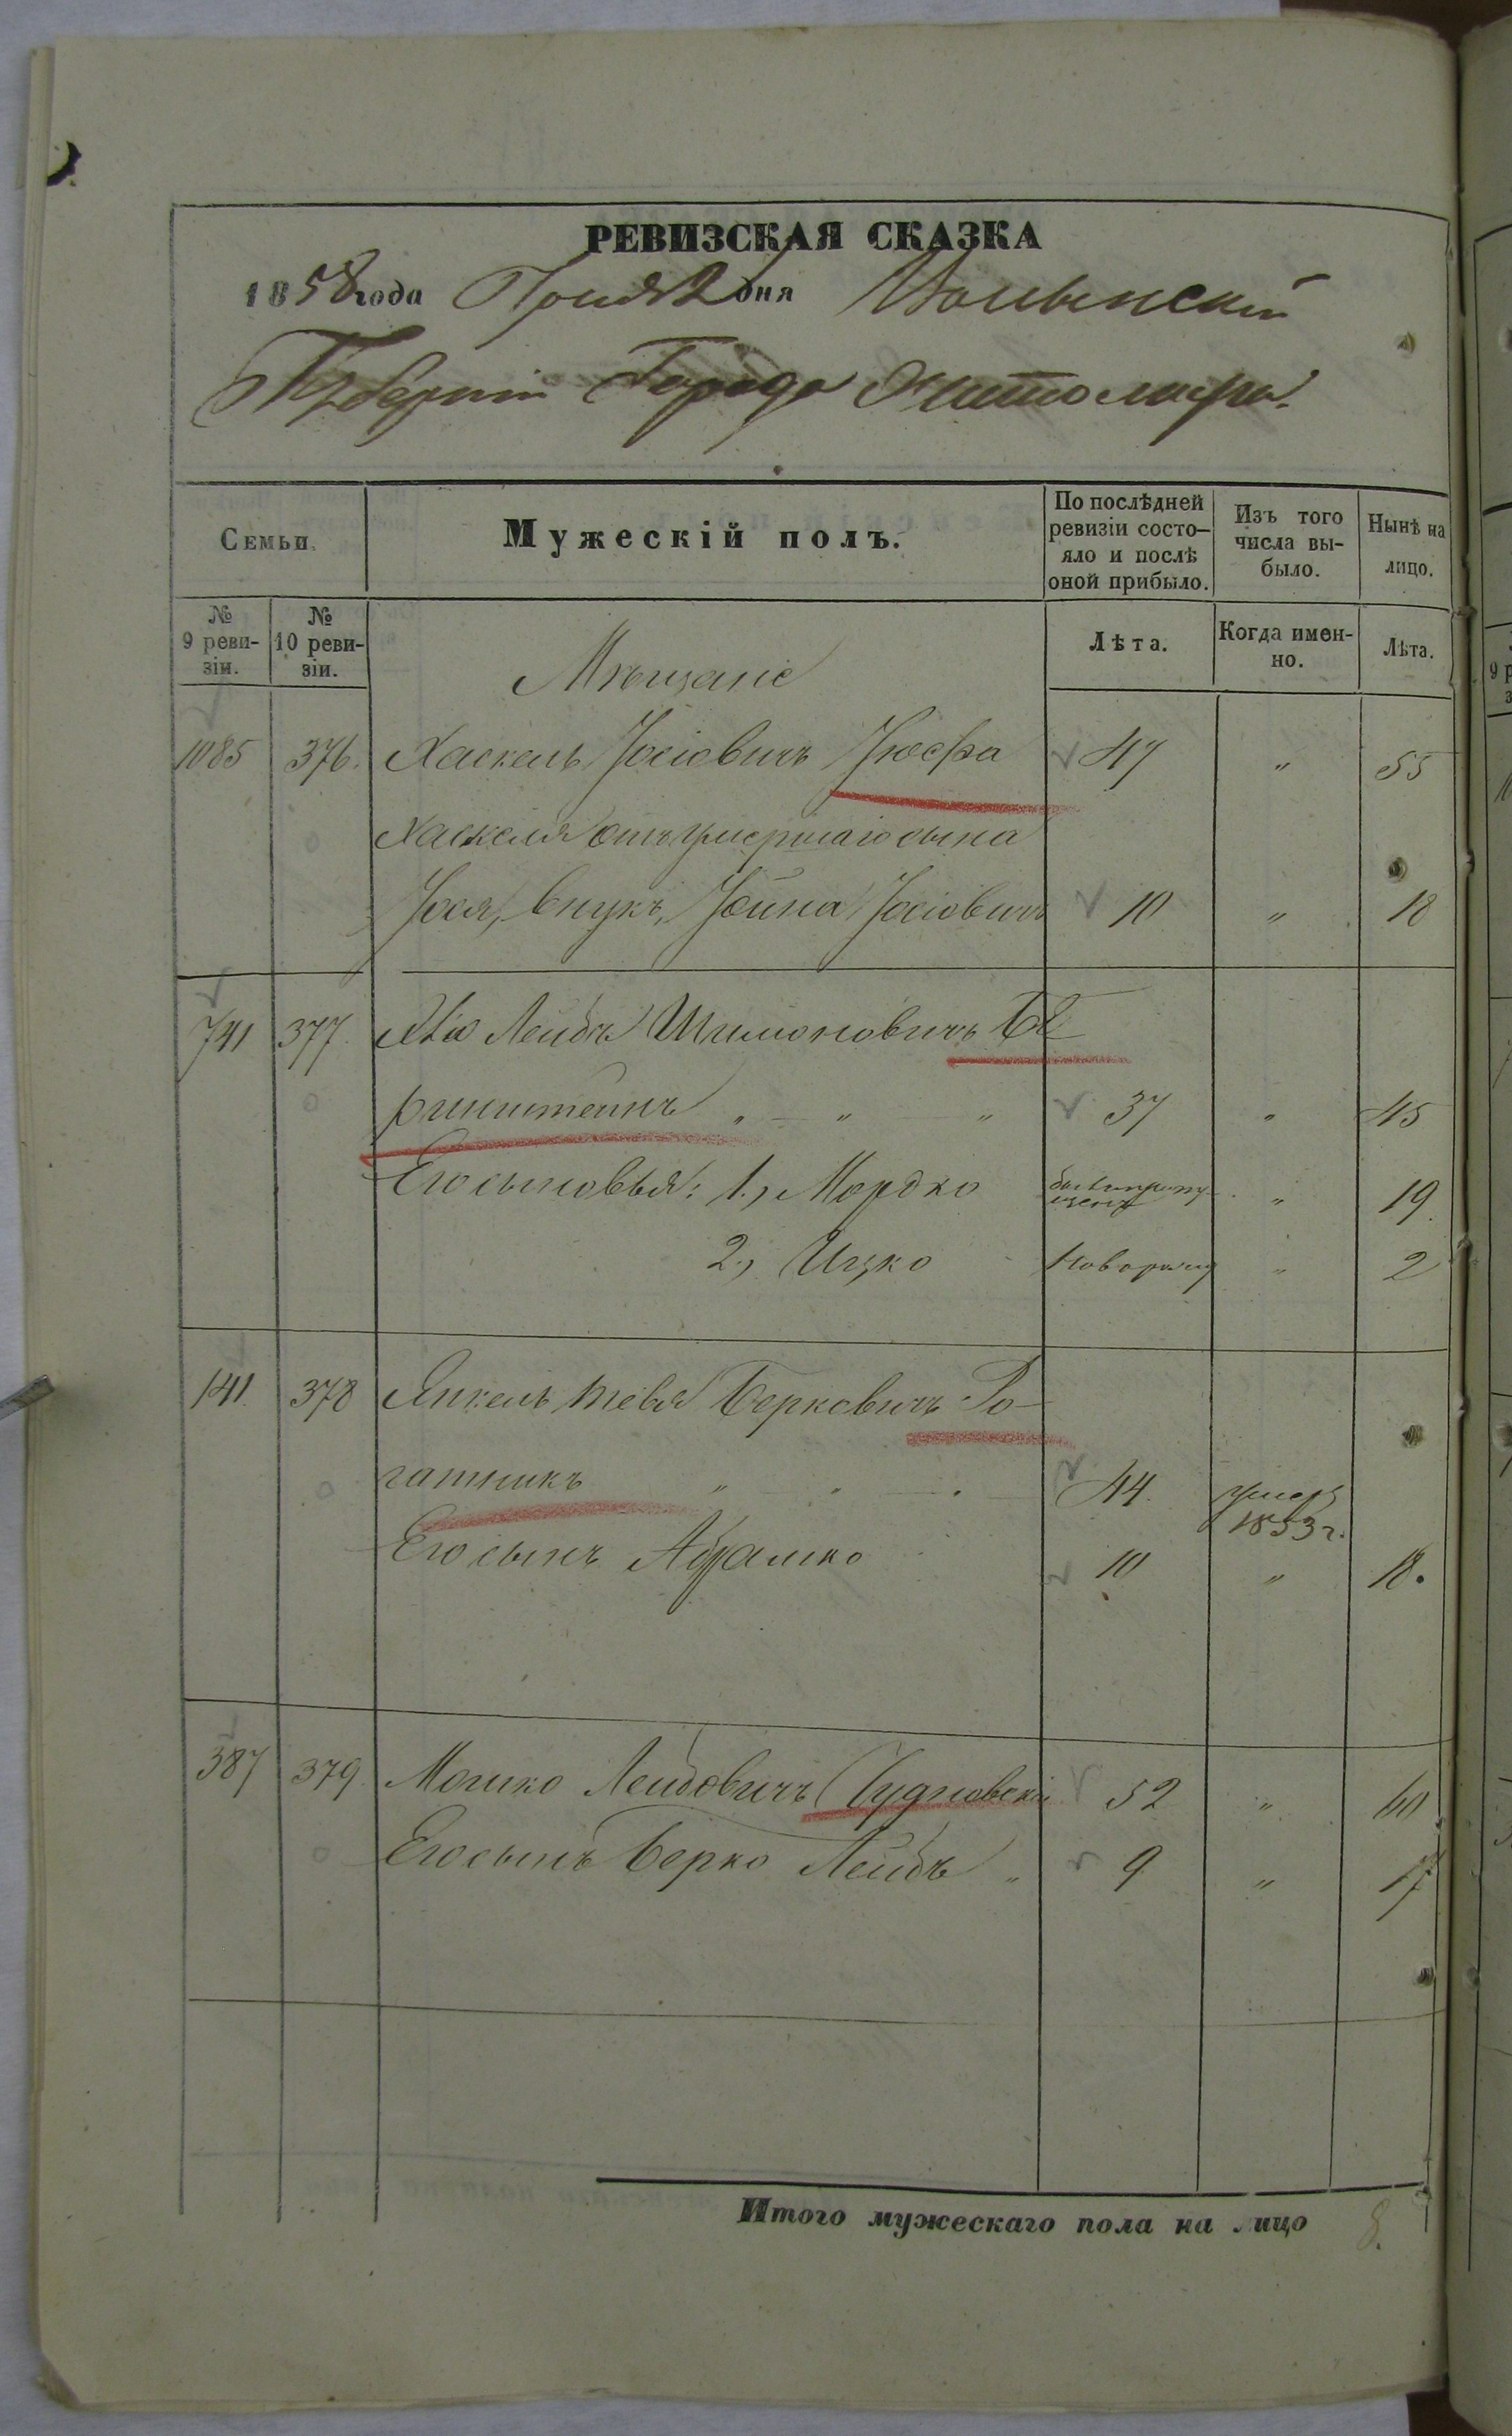 РЕВИЗСКАЯ СКАЗКА
1858 года Іюня 2 дня Волынской
Губерніи Города Житомира.
Семьи.
Мужескій полъ.
По послѣдней ревизіи состо-
яло и послѣ
оной прибыло.
Изъ того
числа вы-
было.
Нынѣ на
лицо.
№
9 реви-
зіи.
№
10 реви-
зіи.
Лѣта.
Когда имен-
но.
Лѣта.
Мѣщане
1085 376. Хаскель Іосіовичъ Іюсфа 47 " 55
Хаскеля отъ умершаго сына
Іося, внукъ, Іойна Іосіовичъ 10 " 18
741 377 Лейбъ Шимоновичъ Бе
ринштейнъ " — " — " 37 " 45
Его сыновья: 1., Мордко " 19.
2., Ицко новорожд " 2
141. 378 Янкель Тевя Берковичъ Ро-
гатникъ " — " — " 44. умеръ
1853 г.
Его сынъ Абрамко 10 " 18.
387 379. Мошко Лейбовичъ Чудновскій 52 " 60
Его сынъ Берко Лейбъ " 9 " 17
Итого мужескаго пола на лицо 8.